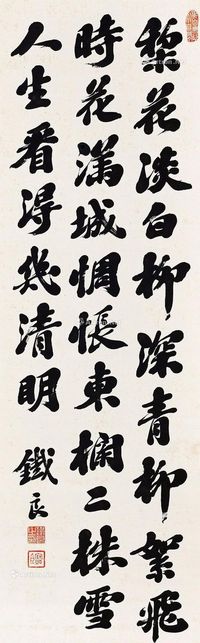 黎花淡白柳深青柳絮飛
時花滿城惆悵東欄二株雪
人生看得幾清明
鐵良